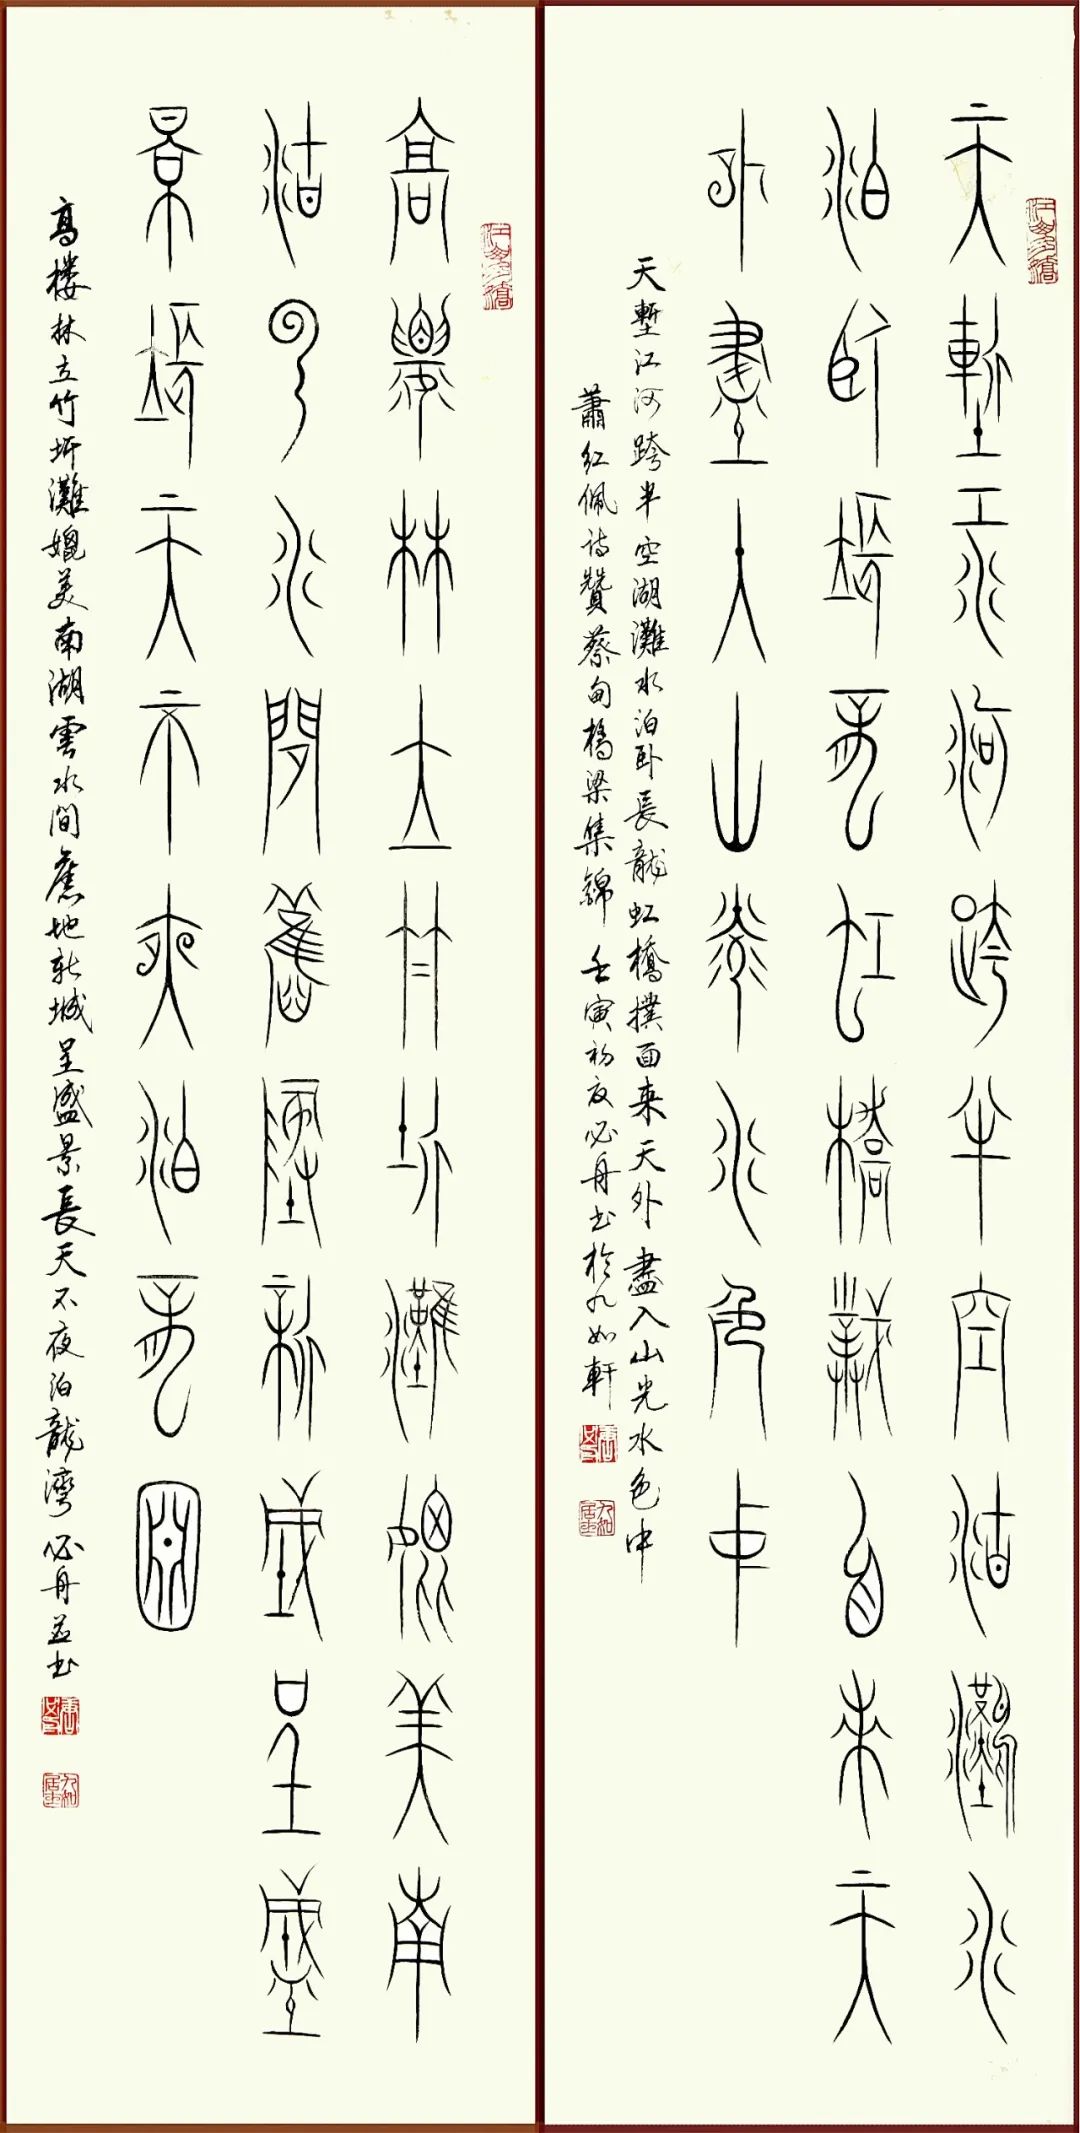 天塹江河跨半空湖灘水
泊卧長龍虹橋撲面来天
外盡入山光水色中
天塹江河跨半空湖灘水泊卧長龍虹橋撲面来天外盡入山光水色中
蕭红佩诗贊蔡甸橋梁集錦 壬寅初夏必舟书於九如軒
高樓林立竹圻灘媲美南
湖雲水間舊地新城呈盛
景長天不夜泊龍灣
高樓林立竹圻灘媲美南湖雲水間舊地新城呈盛景長天不夜泊龍灣必舟並书